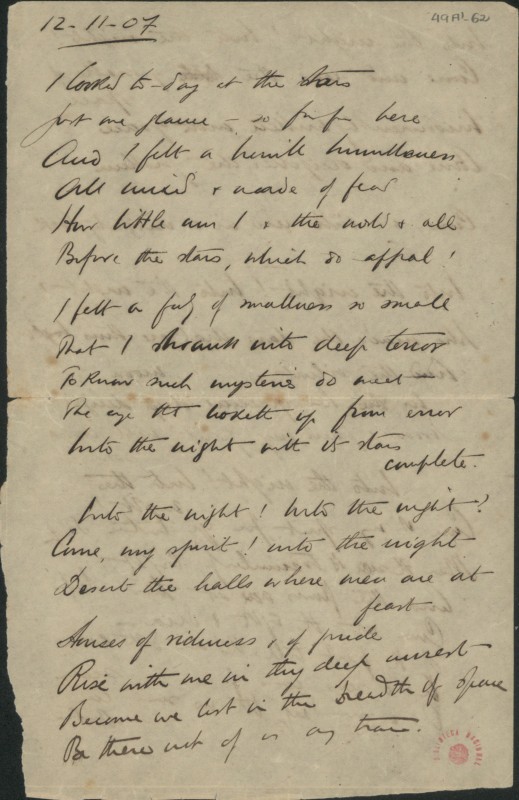 12-11-07
49A1-62
I looked to-day at the stars
Just one glance – so far far here
And I felt a humble
All mixed & made of fear
How little am I & the world & all
Before the stars, which so appal!
I felt a feel of smallness so small
That I shrank into deep terror
To know such mysteries do meet –
The eye tht looketh up from error
Into the night with its stars
complete.
Into the night! Into the night!
Come, my spirit! into the night
Desert the halls where men are at
feast
Houses of richness, & of pride
Rise with me in thy deep unrest
Become we lost in the breadth of space
Be there not of us any trace.
BIBLIOTECA NACIONAL